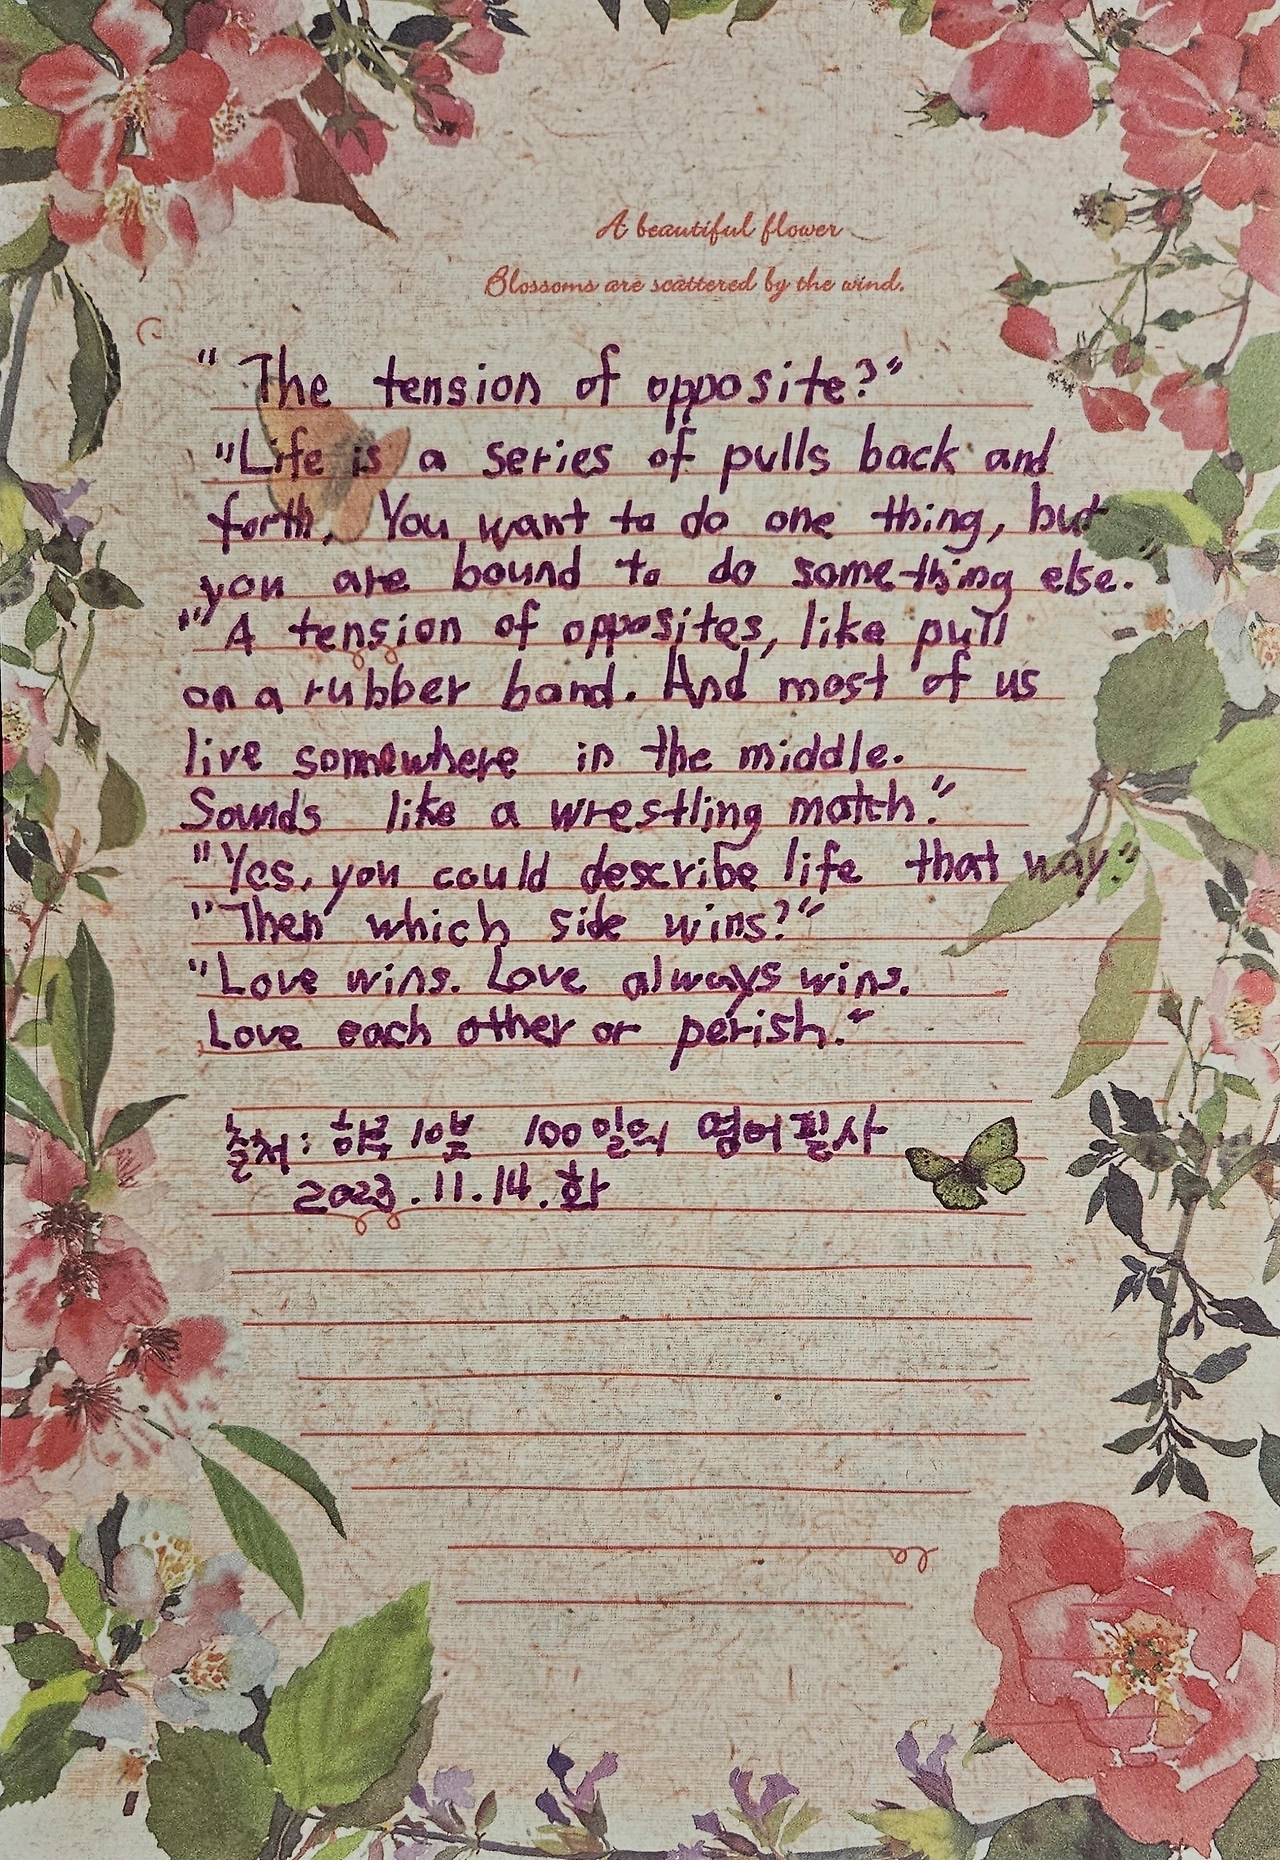 A beautiful flower
Blossoms are scattered by the wind.
"The tension of opposite?"
"Life is a series of pulls back and
forth, You want to do one thing, but
you are bound to do something else.
"A tension of opposites, like pull
on a rubber band. And most of us
live somewhere in the middle.
Sounds like a wrestling match."
"Yes, you could describe life that way."
"Then which side wins?"
"Love wins. Love always wins.
Love each other or perish."
출처: 하루 10분 100일의 영어필사
2023.11.14.화